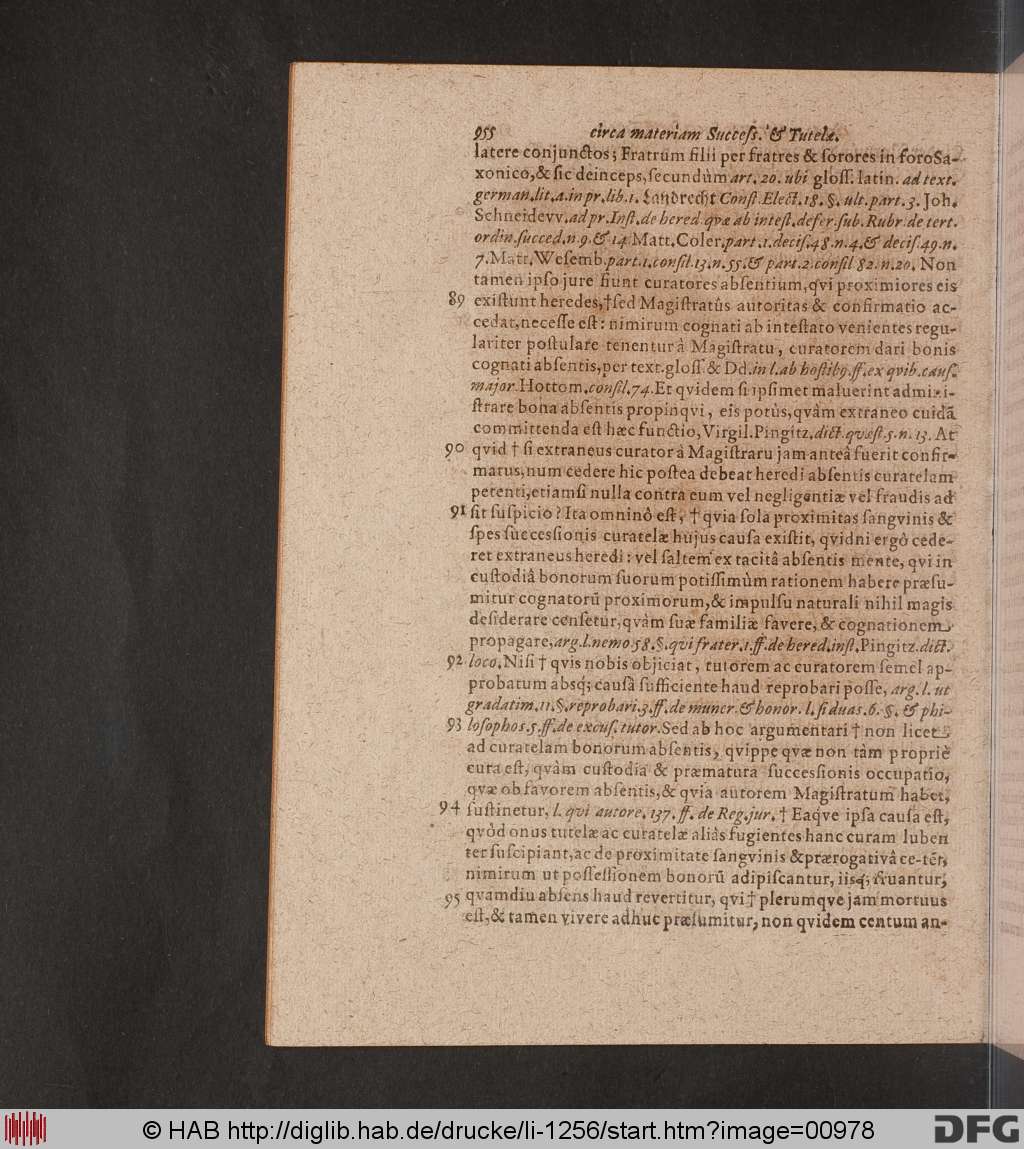 955 circa materiam Succeſs. & Tutelæ.
latere conjunctos; Fratrum filii per fratres & ſorores in foro Sa-
xonico, & ſic deinceps, ſecundùm art. 20. ubi gloſſ. latin. ad text.
german. lit. a. in pr. lib. 1. Landrecht Conſt. Elect. 18. §. ult. part. 3. Joh.
Schneidevv. ad pr. Inſt. de hered. qvæ ab inteſt. defer. ſub. Rubr. de tert.
ordin. ſucced. n. 9. & 14. Matt. Coler. part. 1. deciſ. 48. n. 4. & deciſ. 49. n.
7. Matt. Weſemb. part. 1. conſil. 13. n. 55. & part. 2. conſil 82. n. 20. Non
tamen ipſo jure fiunt curatores abſentium, qvi proximiores eis
89 exiſtunt heredes, † ſed Magiſtratûs autoritas & confirmatio ac-
cedat, neceſſe eſt: nimirum cognati ab inteſtato venientes regu-
lariter poſtulare tenentur à Magiſtratu, curatorem dari bonis
cognati abſentis, per text. gloſſ. & Dd. in l. ab hoſtibꝯ. ff. ex qvib. cauſ.
major. Hottom. conſil. 74. Et qvidem ſi ipſimet maluerint admini-
ſtrare bona abſentis propinqvi, eis potùs, qvàm extraneo cuidã
committenda eſt hæc functio, Virgil. Pingitz. dict. qvæſt. 5. n. 13. At
90 qvid † ſi extraneus curator à Magiſtraru jam anteâ fuerit confir-
matus, num cedere hic poſtea debeat heredi abſentis curatelam
petenti, etiamſi nulla contra eum vel negligentiæ vel fraudis ad
91 ſit ſuſpicio? Ita omninô eſt, † qvia ſola proximitas ſangvinis &
ſpes ſucceſſionis curatelæ hujus cauſa exiſtit, qvidni ergò cede-
ret extraneus heredi: vel ſaltem ex tacitâ abſentis mente, qvi in
cuſtodiâ bonorum ſuorum potiſſimùm rationem habere præſu-
mitur cognatorũ proximorum, & impulſu naturali nihil magis
deſiderare cenſetur, qvàm ſuæ familiæ favere, & cognationem
propagare, arg. l. nemo 58. §. qvi frater. 1. ff. de hered. inſt. Pingitz. dict.
92 loco. Niſi † qvis nobis objiciat, tutorem ac curatorem ſemel ap-
probatum absq; cauſâ ſufficiente haud reprobari poſſe, arg. l. ut
gradatim. 11. §. reprobari. 3. ff. de muner. & honor. l. ſi duas. 6. §. & phi-
93 loſophos. 5. ff. de excuſ. tutor. Sed ab hoc argumentari † non licet
ad curatelam bonorum abſentis, qvippe qvæ non tàm propriè
cura eſt, qvàm cuſtodia & præmatura ſucceſſionis occupatio,
qvæ ob favorem abſentis, & qvia autorem Magiſtratum habet,
94 ſuſtinetur, l. qvi autore. 137. ff. de Reg. jur. † Eaqve ipſa cauſa eſt,
qvòd onus tutelæ ac curatelæ aliàs fugientes hanc curam luben
ter ſuſcipiant, ac de proximitate ſangvinis & prærogativâ ce-tẽt,
nimirum ut poſſeſſionem bonorũ adipiſcantur, iisq; fruantur,
95 qvamdiu abſens haud revertitur, qvi † plerumqve jam mortuus
eſt, & tamen vivere adhuc præſumitur, non qvidem centum an-
© HAB http://diglib.hab.de/drucke/li-1256/start.htm?image=00978
DFG